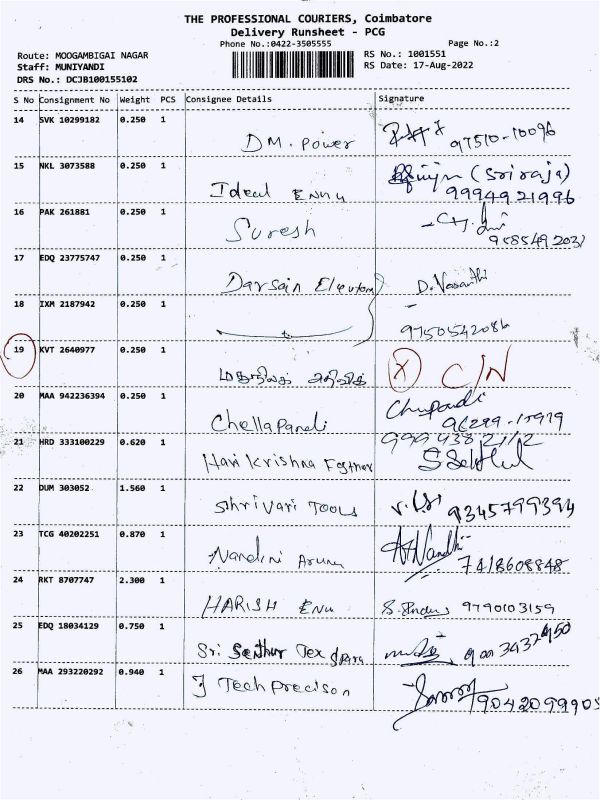 THE PROFESSIONAL COURIERS, Coimbatore
Delivery Runsheet - PCG
Phone No.:0422-3505555 Page No.:2
Route: MOOGAMBIGAI NAGAR RS No.: 1001551
Staff: MUNIYANDI RS Date: 17-Aug-2022
DRS No.: DCJB100155102
S No Consignment No Weight PCS Consignee Details Signature
14 SVK 10299182 0.250 1
DM. Power 97510-10096
15 NKL 3073588 0.250 1
Ideal (Sriraja)
9994921996
16 PAK 261881 0.250 1
Suresh
17 EDQ 23775747 0.250 1
Darsain D. Vasanthi
18 IXM 2187942 0.250 1
9750542086
19 KVT 2640977 0.250 1
X C/N
20 MAA 942236394 0.250 1
Chellapandi
21 HRD 333100229 0.620 1
Hari Krishna
22 DUM 303052 1.560 1
Shri Vari Tools 9345799394
23 TCG 40202251 0.870 1
Nandini Nandhi
7418608848
24 RKT 8707747 2.300 1
HARISH 9790103159
25 EDQ 18034129 0.750 1
Sri Senthur Tex
26 MAA 293220292 0.940 1
J Tech Precison